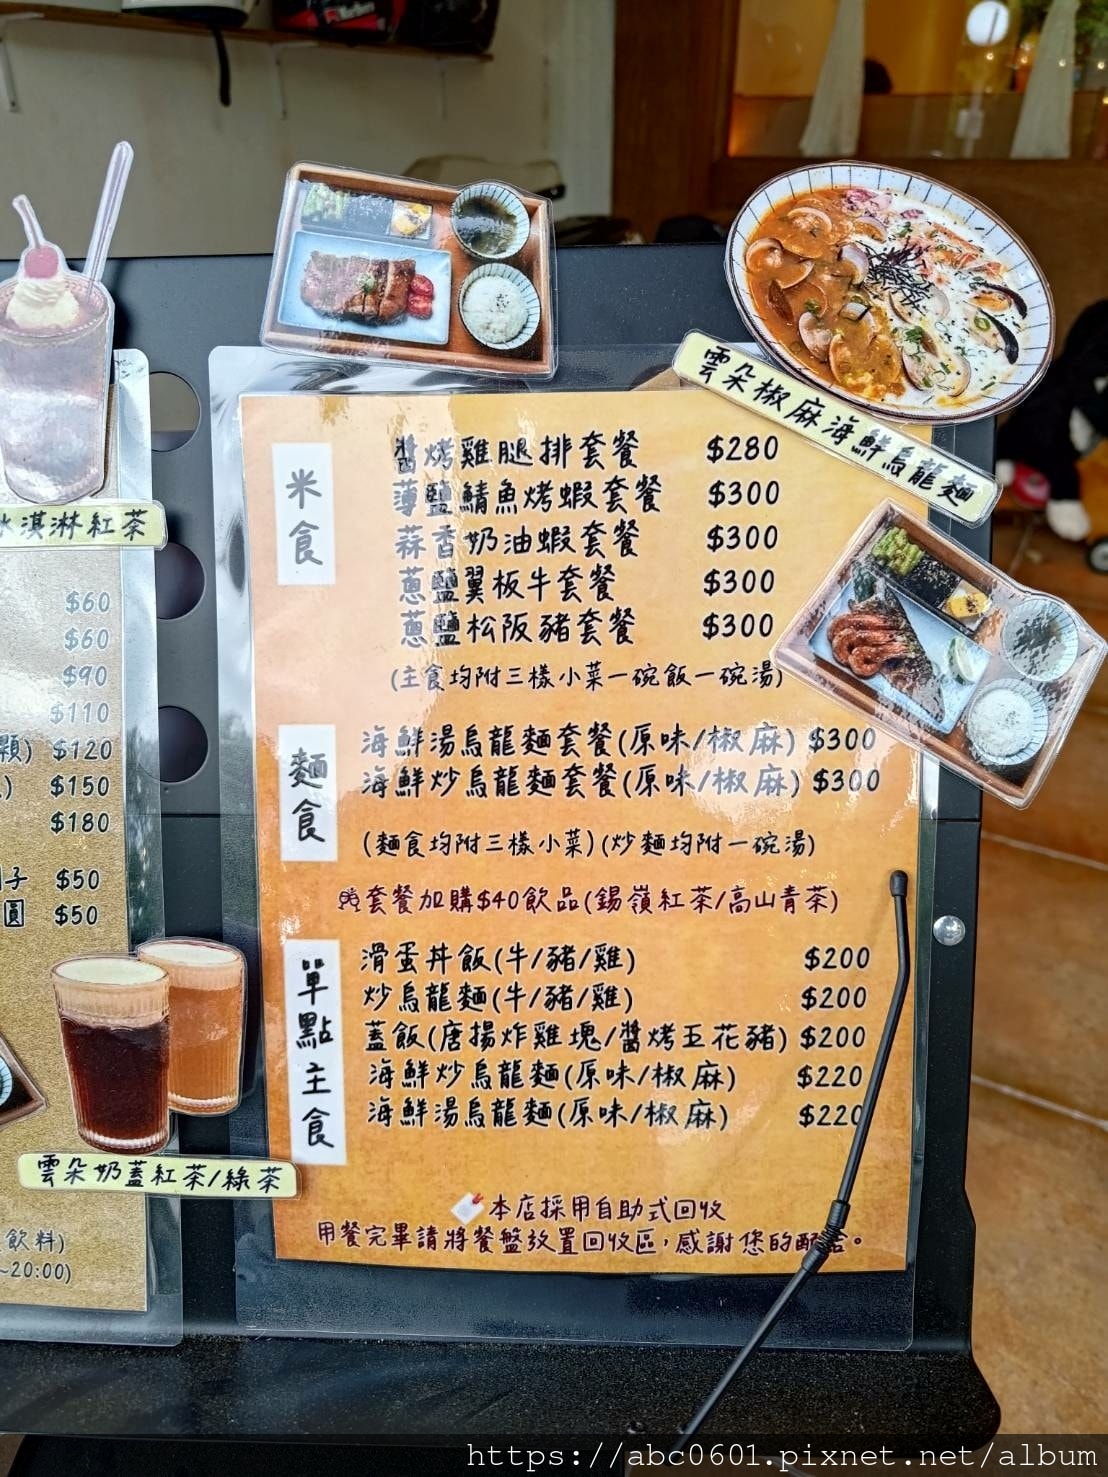 冰淇淋紅茶
$60
$60
$90
$110
顆) $120
$150
$180
子 $50
圓 $50
雲朵奶蓋紅茶/綠茶
飲料)
~20:00)
雲朵椒麻海鮮烏龍麵
米食
醬烤雞腿排套餐 $280
薄鹽鯖魚烤蝦套餐 $300
蒜香奶油蝦套餐 $300
蔥鹽翼板牛套餐 $300
蔥鹽松阪豬套餐 $300
(主食均附三樣小菜一碗飯一碗湯)
麵食
海鮮湯烏龍麵套餐(原味/椒麻) $300
海鮮炒烏龍麵套餐(原味/椒麻) $300
(麵食均附三樣小菜)(炒麵均附一碗湯)
套餐加購$40飲品(錫嶺紅茶/高山青茶)
單點主食
滑蛋丼飯(牛/豬/雞) $200
炒烏龍麵(牛/豬/雞) $200
蓋飯(唐揚炸雞塊/醬烤五花豬) $200
海鮮炒烏龍麵(原味/椒麻) $220
海鮮湯烏龍麵(原味/椒麻) $220
本店採用自助式回收
用餐完畢請將餐盤放置回收區,感謝您的配合。
https://abc0601.pixnet.net/album